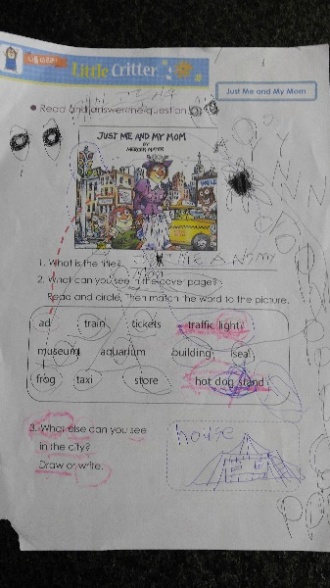 Little Critter
Just Me and My Mom
Read and answer the question
JUST ME AND MY MOM
BY
MERCER MAYER
1. What is the title?
2. What can you see in the cover page?
Read and circle. Then match the word to the picture.
ad train tickets traffic light
museum aquarium building seal
frog taxi store hot dog stand
3. What else can you see
in the city?
Draw or write.
house